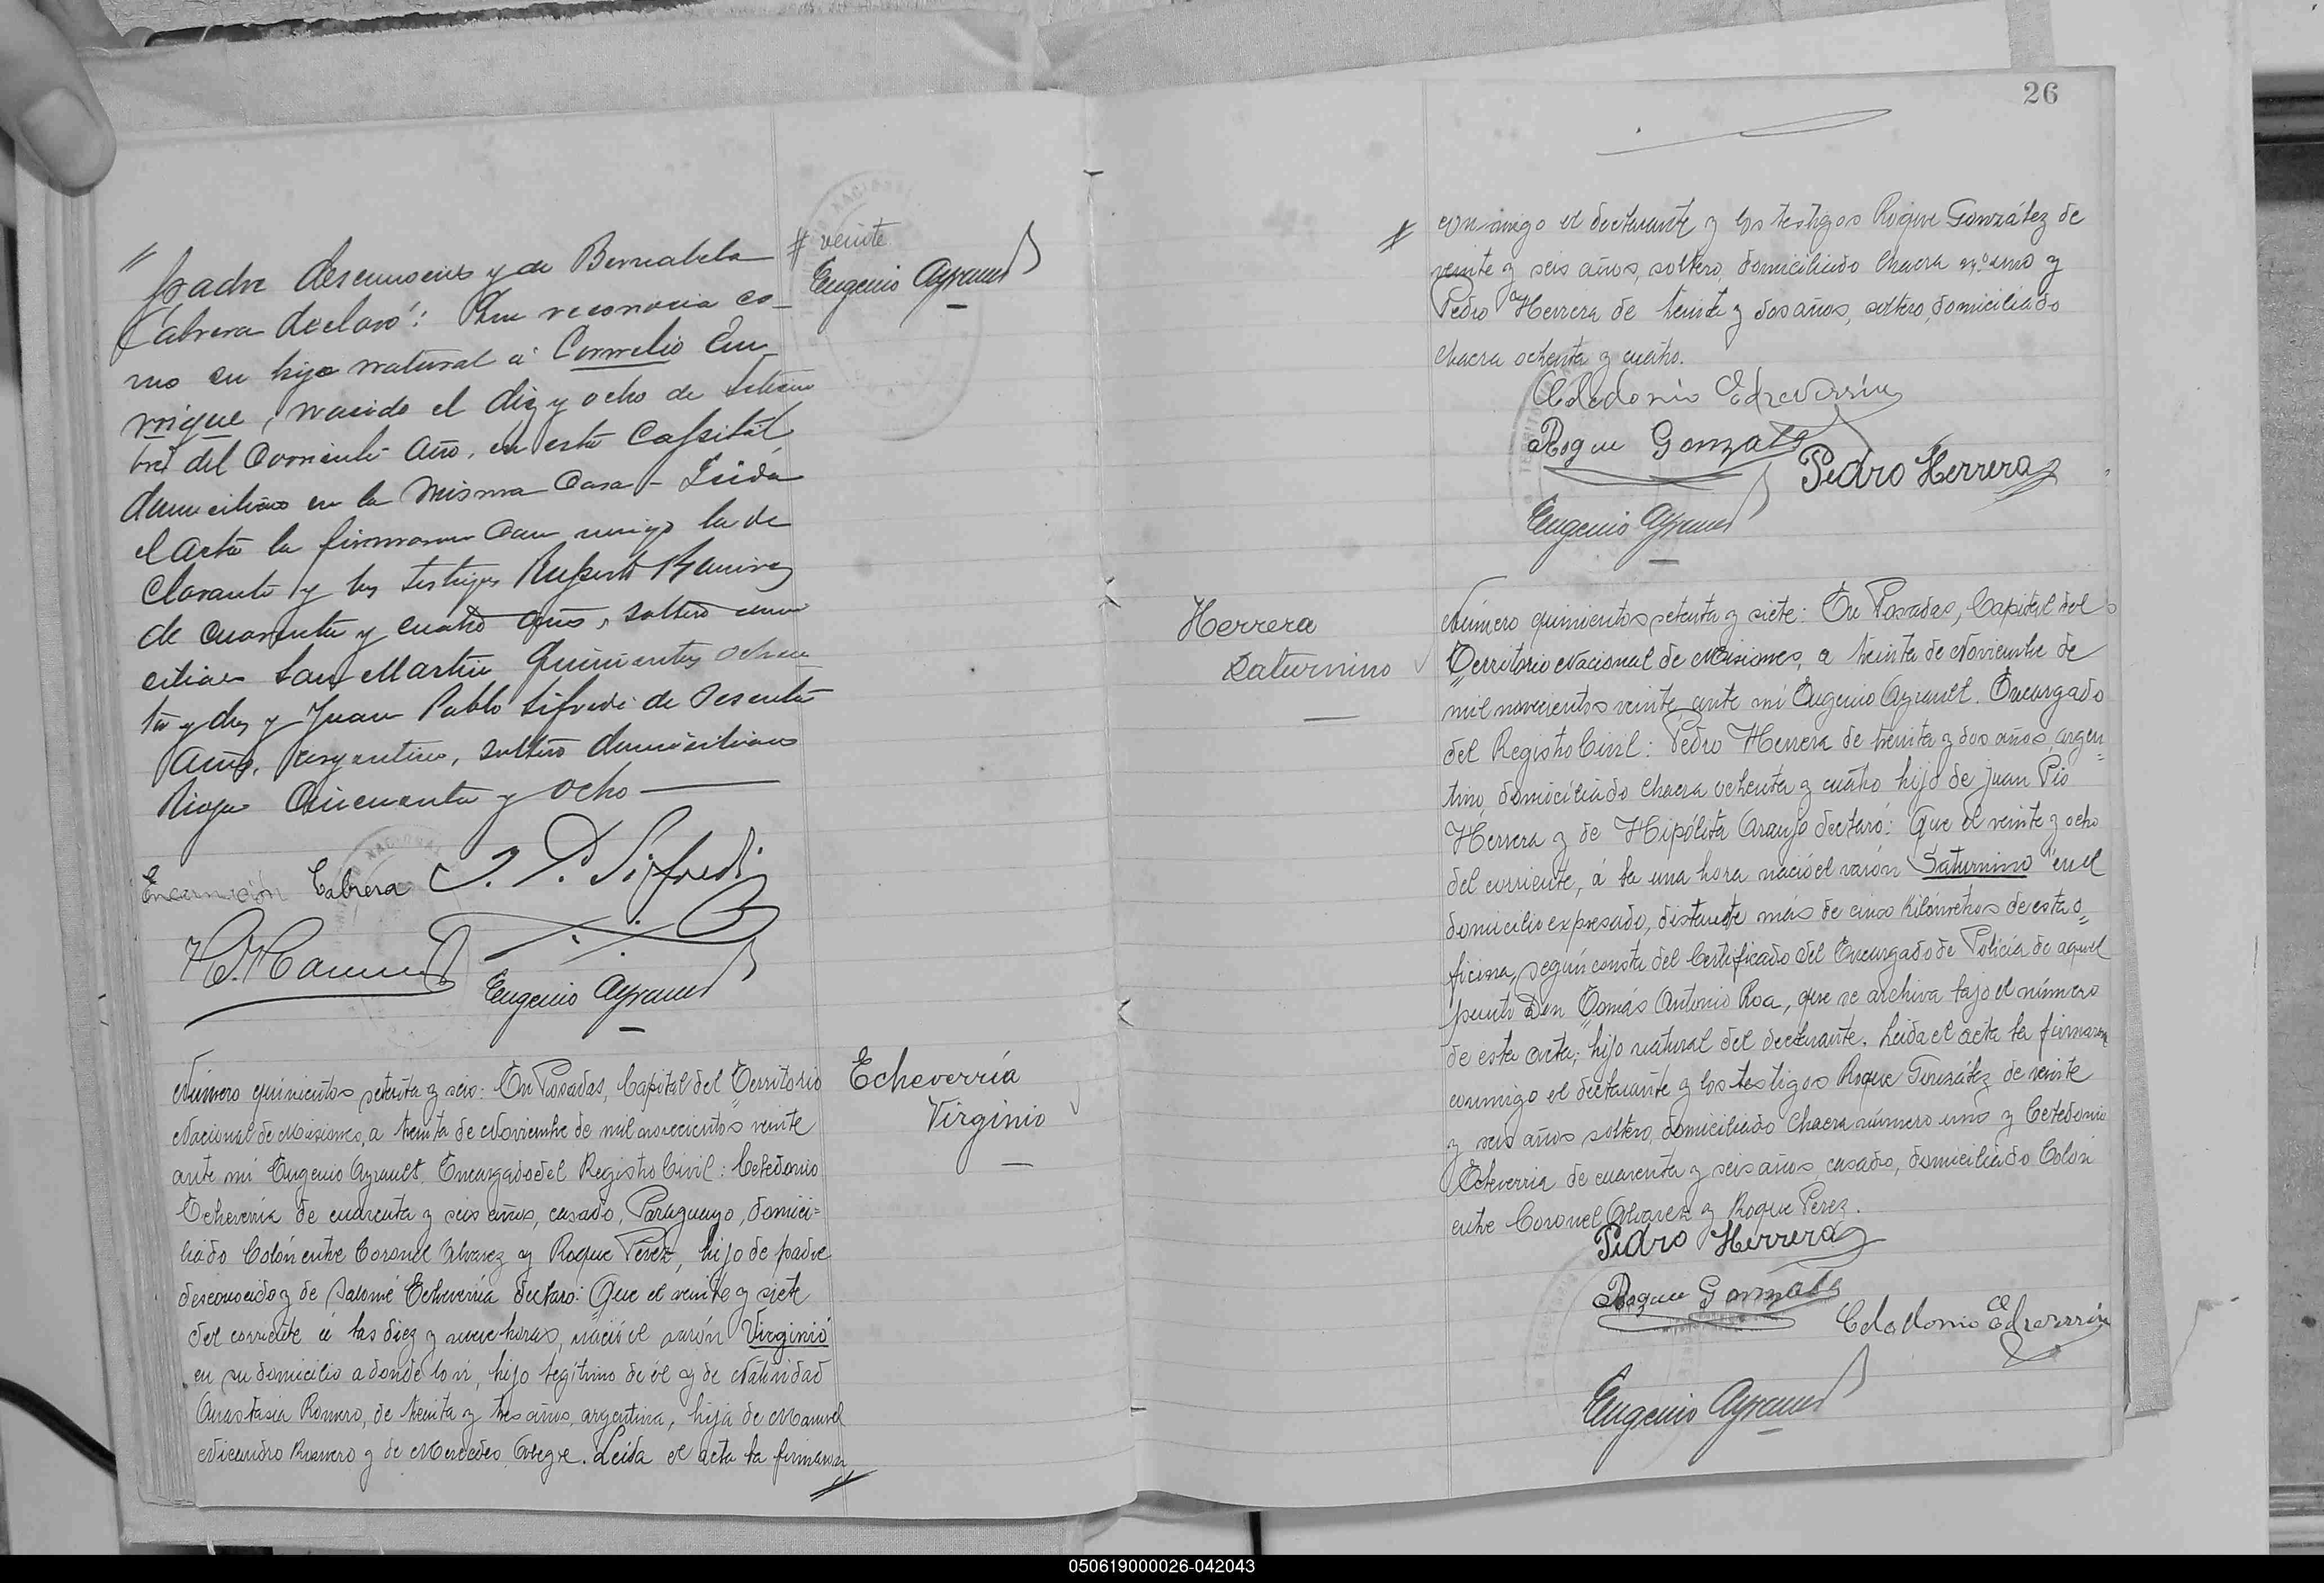 padre desconocido y de Bernabela
Cabrera declaró: Que reconocía co-
mo su hijo natural á Cornelio En-
rrique, nacido el diez y ocho de Setiem
bre del corriente año, en esta Capital
domiciliado en la misma Casa - Leída
el acta la firmaron con migo la de
clarante y los testigos Ruperto Ramirez
de cuarenta y cuatro años, soltero domi
ciliado San Martín quinientos ochen
ta y dos y Juan Pablo Sifredi de sesenta
años, argentino, soltero domiciliado
Rioja Cincuenta y ocho
# veinte
Eugenio Ayrault
Encarnación Cabrera J. P. Sifredi
R. Ramirez
Eugenio Ayrault
Número quinientos setenta y seis: En Posadas, Capital del Territorio
Nacional de Misiones, a treinta de Noviembre de mil novecientos veinte
ante mi Eugenio Ayrault, Encargado del Registro Civil: Celedonio
Echeverría de cuarenta y seis años, casado, Paraguayo, domici=
liado Colón entre Coronel Alvarez y Roque Perez, hijo de padre
desconocido y de Salomé Echeverría declaró: Que el veinte y siete
del corriente á las diez y nueve horas, nació el varón Virginio
en su domicilio a donde lo vi, hijo legítimo de él y de Natividad
Anastasia Romero, de treinta y tres años, argentina, hija de Manuel
Nicandro Romero y de Mercedes . Leída el acta la firmaron
Echeverría
Virginio
26
# conmigo el declarante y los testigos Roque González de
veinte y seis años, soltero, domiciliado Chacra n.º uno y
Pedro Herrera de treinta y dos años, soltero, domiciliado
Chacra ochenta y cuatro.
Celedonio Echeverría
Roque Gonzalez
Pedro Herrera
Eugenio Ayrault
Herrera
Saturnino
Número quinientos setenta y siete: En Posadas, Capital del
Territorio Nacional de Misiones, a treinta de Noviembre de
mil novecientos veinte, ante mi Eugenio Ayrault. Encargado
del Registro Civil: Pedro Herrera de treinta y dos años, argen=
tino, domiciliado Chacra ochenta y cuatro hijo de Juan Pio
Herrera y de Hipólita Araujo declaró: Que el veinte y ocho
del corriente, á la una hora nació el varón Saturnino en el
domicilio expresado, distante más de cinco kilómetros de esta o=
ficina, según consta del Certificado del Encargado de Policía de aquel
punto Don Tomás Antonio Roa, que se archiva bajo el número
de esta acta; hijo natural del declarante. Leida el acta la firmaron
conmigo el declarante y los testigos Roque González de veinte
y seis años soltero, domiciliado Chacra número uno y Celedonio
Echeverria de cuarenta y seis años, casado, domiciliado Colón
entre Coronel Alvarez y Roque Perez.
Pedro Herrera
Roque Gonzalez
Celedonio Echeverría
Eugenio Ayrault
050619000026-042043